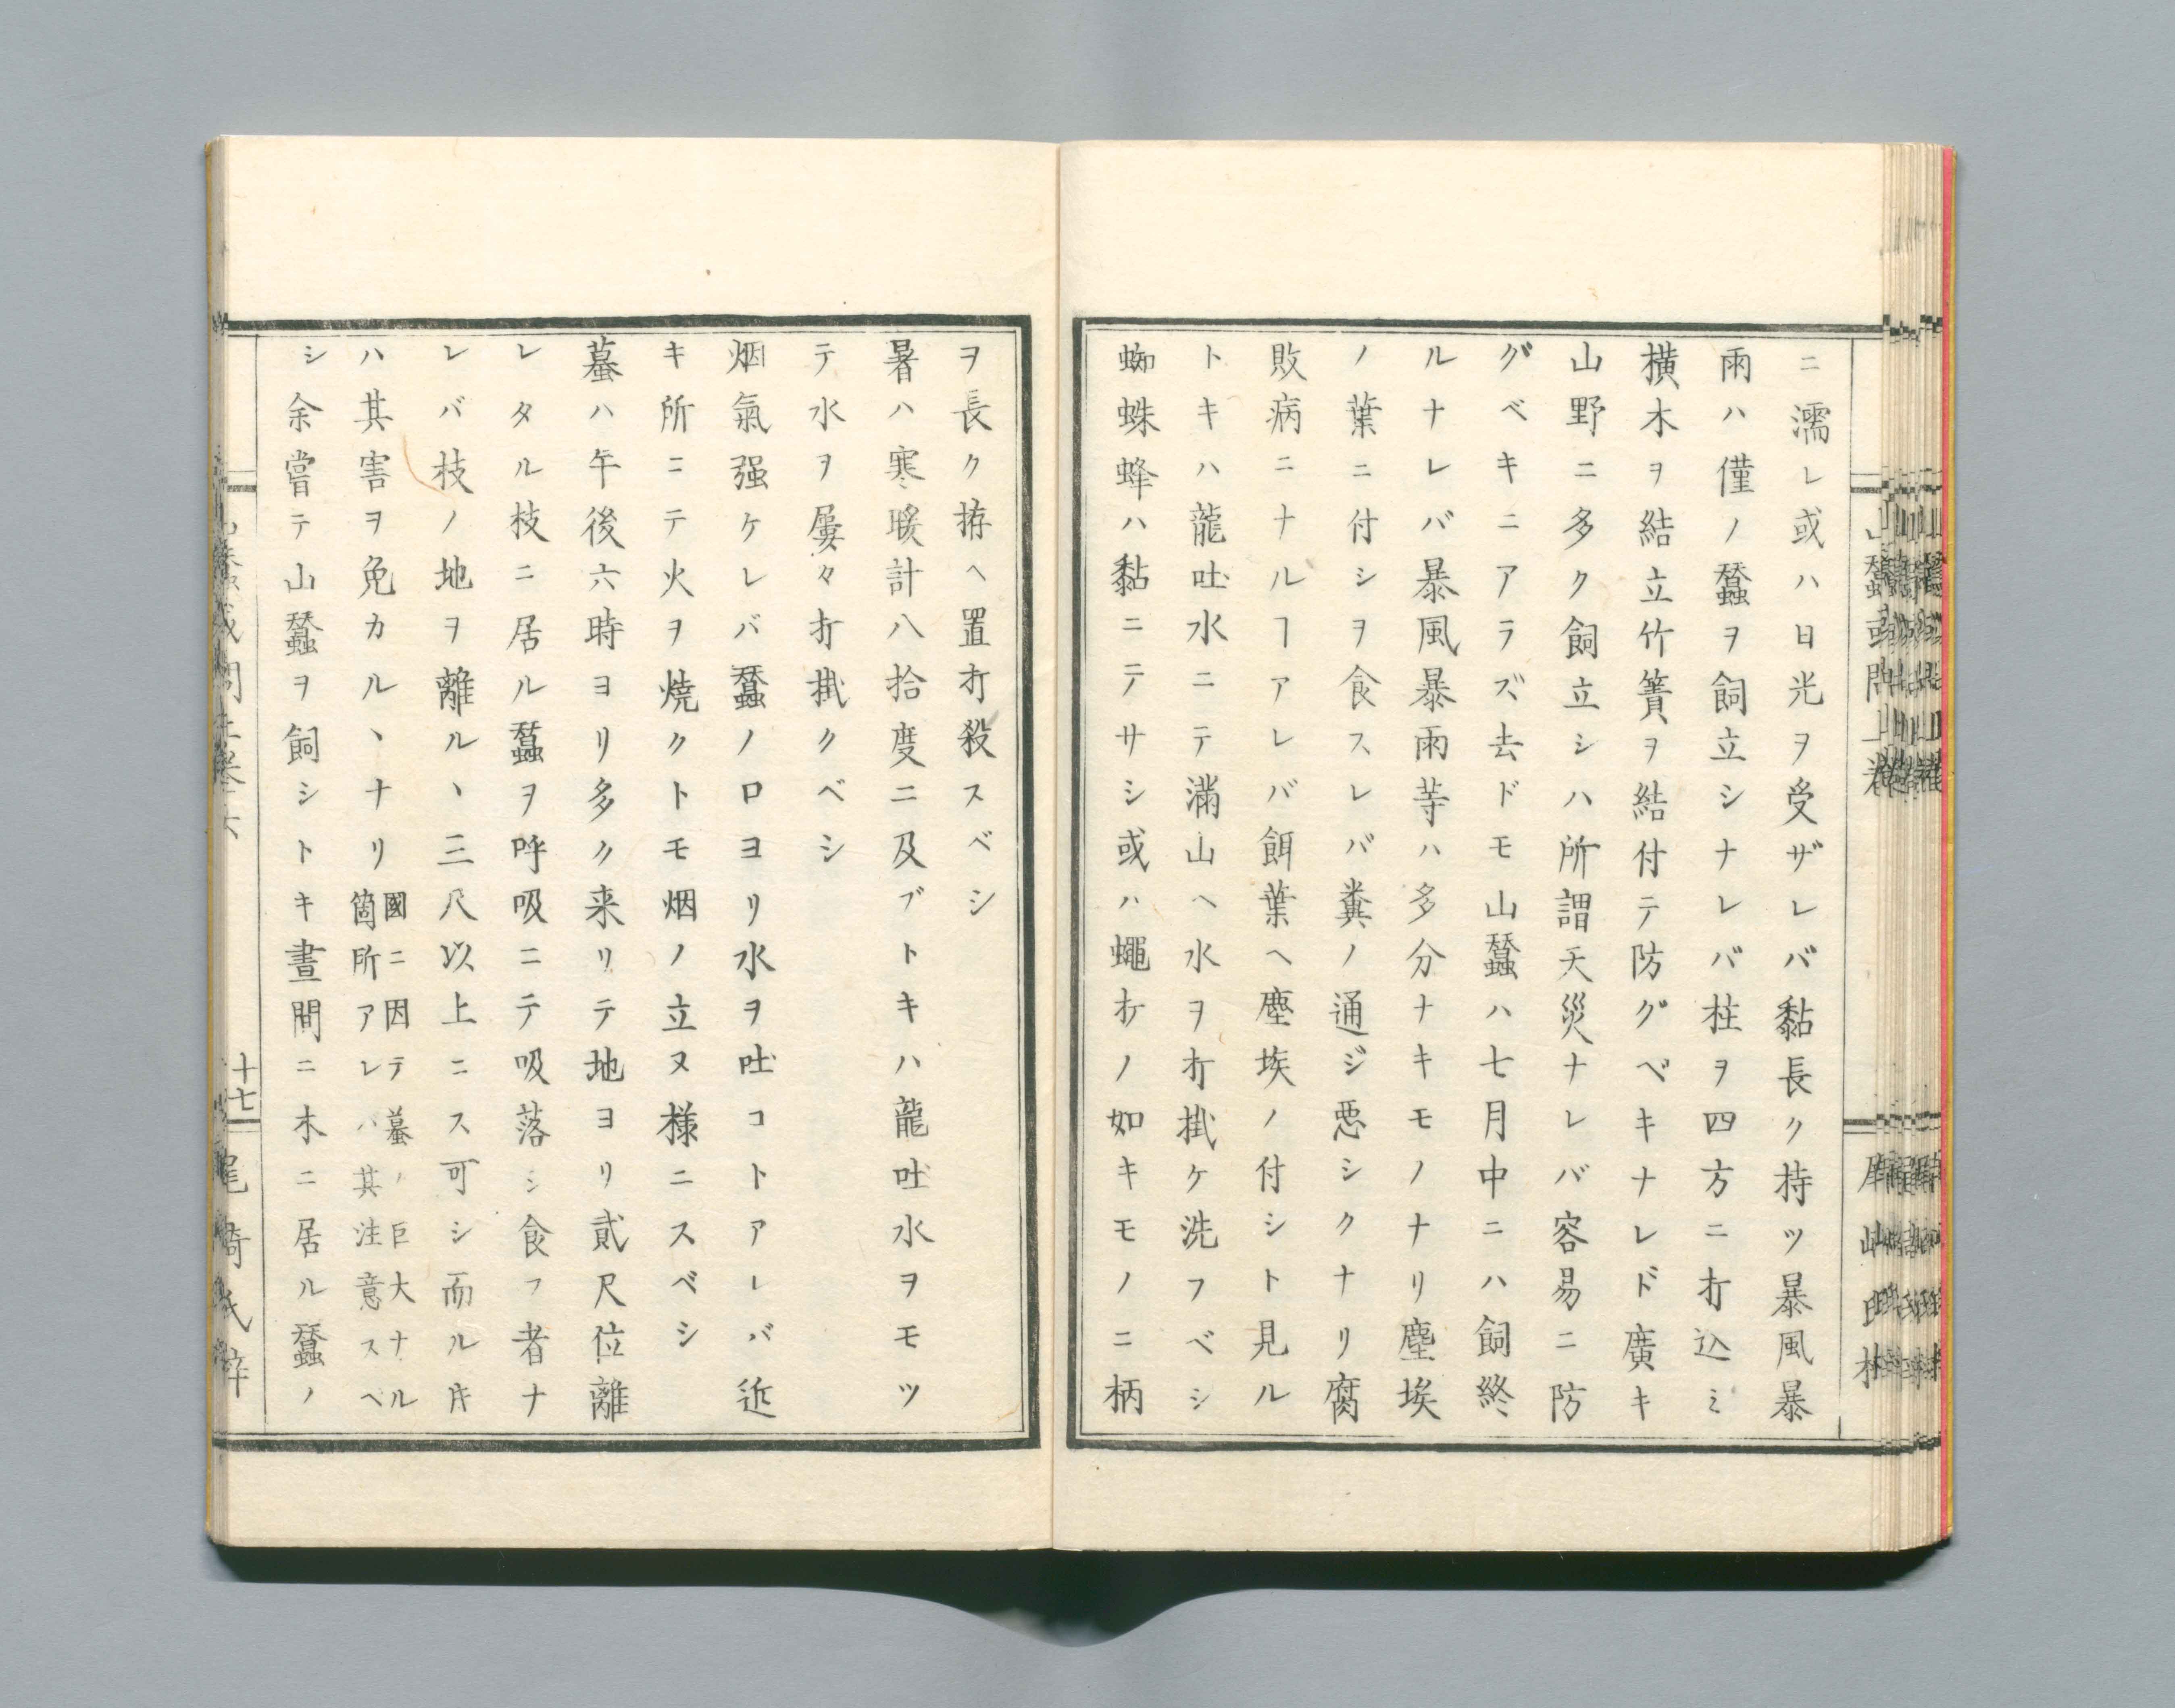 ニ濡レ或ハ日光ヲ受ザレバ黏長ク持ツ暴風暴
雨ハ僅ノ蠶ヲ飼立シナレバ柱ヲ四方ニ打込ミ
横木ヲ結立竹簀ヲ結付テ防グベキナレド廣キ
山野ニ多ク飼立シハ所謂天災ナレバ容易ニ防
グベキニアラズ去ドモ山蠶ハ七月中ニハ飼終
ルナレバ暴風暴雨等ハ多分ナキモノナリ塵埃
ノ葉ニ付シヲ食スレバ糞ノ通ジ悪シクナリ腐
敗病ニナルヿアレバ餌葉ヘ塵埃ノ付シト見ル
トキハ龍吐水ニテ満山ヘ水ヲ打掛ケ洗フベシ
蜘蛛蜂ハ黏ニテサシ或ハ蠅打ノ如キモノニ柄
ヲ長ク拵ヘ置打殺スベシ
暑ハ寒暖計八拾度ニ及ブトキハ龍吐水ヲモツ
テ水ヲ屢々打掛クベシ
烟氣强ケレバ蠶ノ口ヨリ水ヲ吐コトアレバ近
キ所ニテ火ヲ焼クトモ烟ノ立ヌ様ニスベシ
蟇ハ午後六時ヨリ多ク来リテ地ヨリ貳尺位離
レタル枝ニ居ル蠶ヲ呼吸ニテ吸落シ食フ者ナ
レバ枝ノ地ヲ離ルヽ三尺以上ニス可シ而ル𪜈
ハ其害ヲ免カルヽナリ
國ニ因テ蟇ノ巨大ナル
箇所アレバ其注意スベ
シ余嘗テ山蠶ヲ飼シトキ晝間ニ木ニ居ル蠶ノ
十七